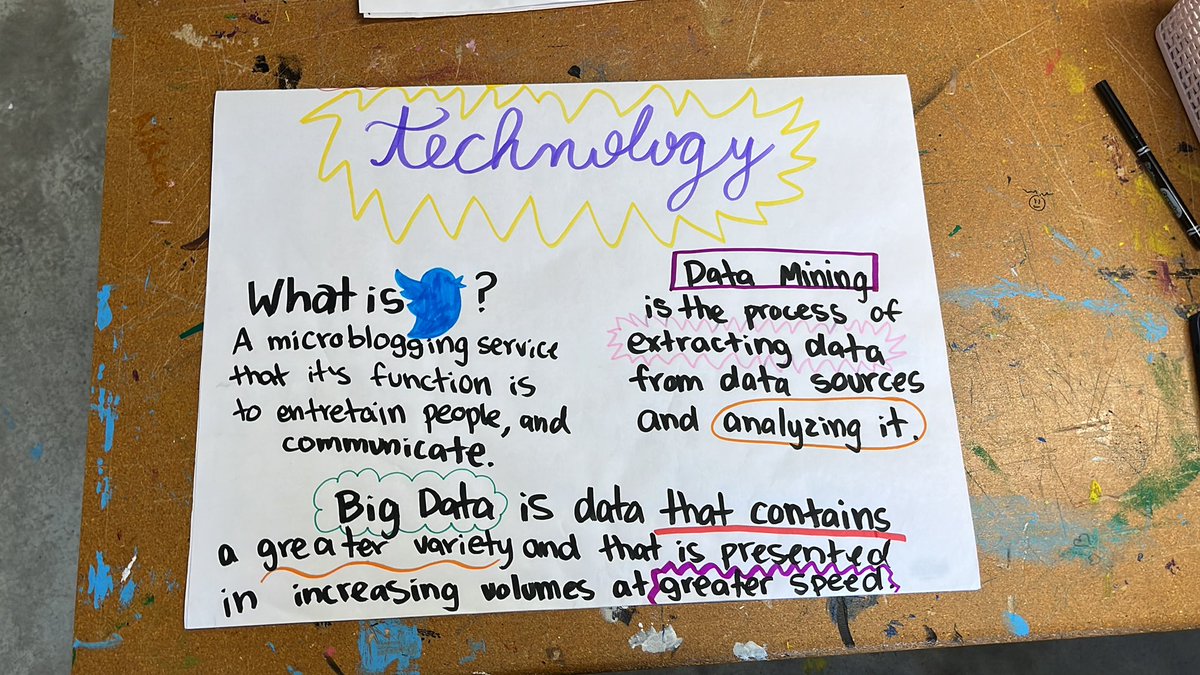 Technology
What is ?
A microblogging service
that it's function is
to entretain people, and
communicate.
Data Mining
is the process of
extracting data
from data sources
and analyzing it.
Big Data is data that contains
a greater variety and that is presented
in increasing volumes at greater speed.